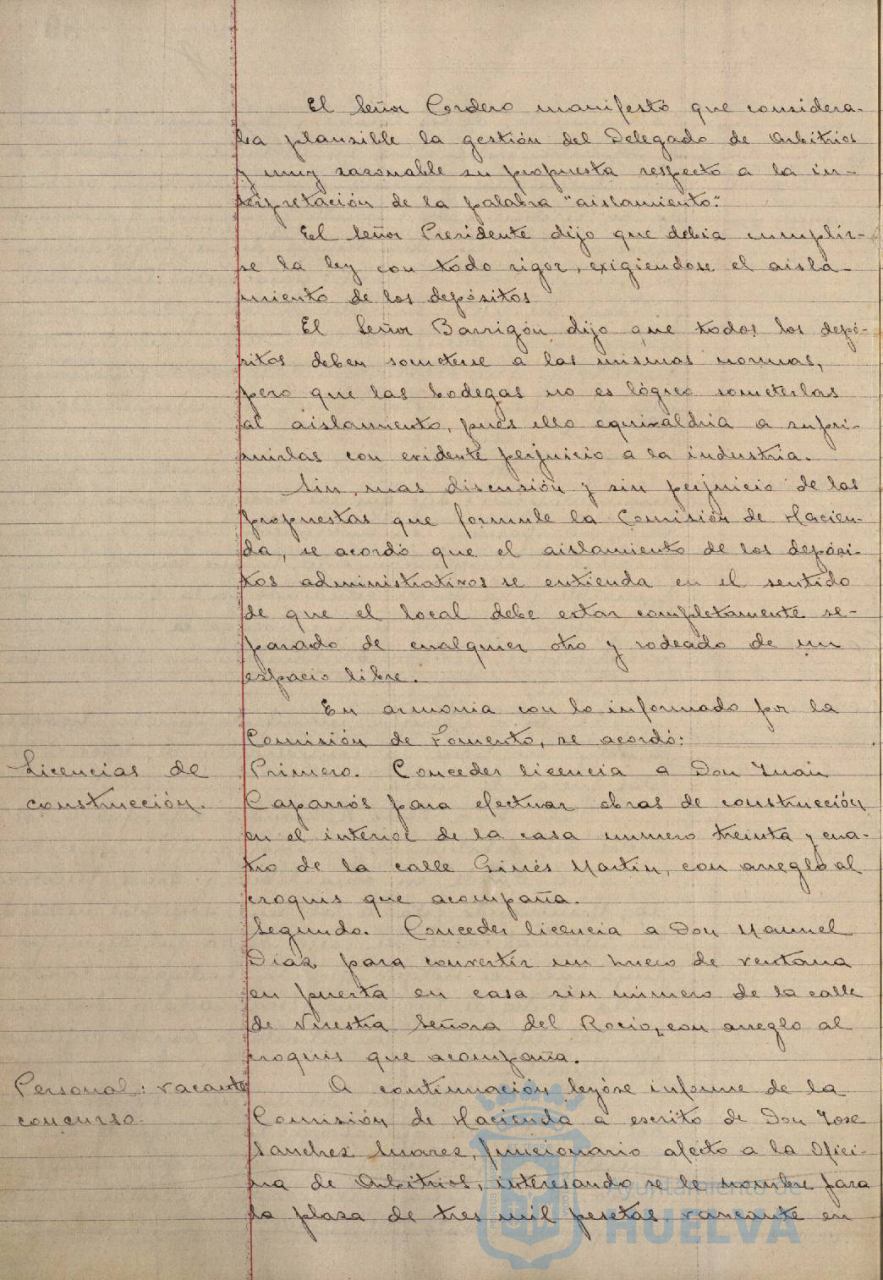 El Señor Cordero manifestó que considera-
ba plausible la gestión del Delegado de Arbitrios
y muy razonable su propuesta respecto a la in-
terpretación de la palabra "aislamiento".
El Señor Presidente dijo que debia cumplir-
se la ley con todo rigor, exigiendose el aisla-
miento de los depósitos
El Señor Barrigón dijo que todos los depó-
sitos deben someterse a las mismas normas,
pero que las bodegas no es lógico someterlas
al aislamiento, pues ello equivaldria a supri-
mirlas con evidente perjuicio a la industria.
Sin mas discusión y sin perjuicio de las
propuestas que formule la Comisión de Hacien-
da, se acordó que el aislamiento de los depósi-
tos administrativos se entienda en el sentido
de que el local debe estar completamente se-
parado de cualquier otro y rodeado de un
espacio libre.
En armonia con lo informado por la
Comisión de Fomento, se acordó:
Licencias de
construcción.
Primero. Conceder licencia a Don Juan
Caparrós para efectuar obras de construcción
en el interior de la casa numero treinta y cua-
tro de la calle Ginés Martin, con arreglo al
croquis que acompaña.
Segundo. Conceder licencia a Don Manuel
Diaz para convertir un hueco de ventana
en puerta en casa sin número de la calle
de Nuestra Señora del Rocio, con arreglo al
croquis que acompaña.
Personal: vacante
concurso.
A continuación leyóse informe de la
Comisión de Hacienda a escrito de Don José
Sanchez Suarez, funcionario afecto a la Ofici-
na de Arbitrios, interesando se le nombre para
la plaza de tres mil pesetas vancante en
Ayuntamiento de
HUELVA